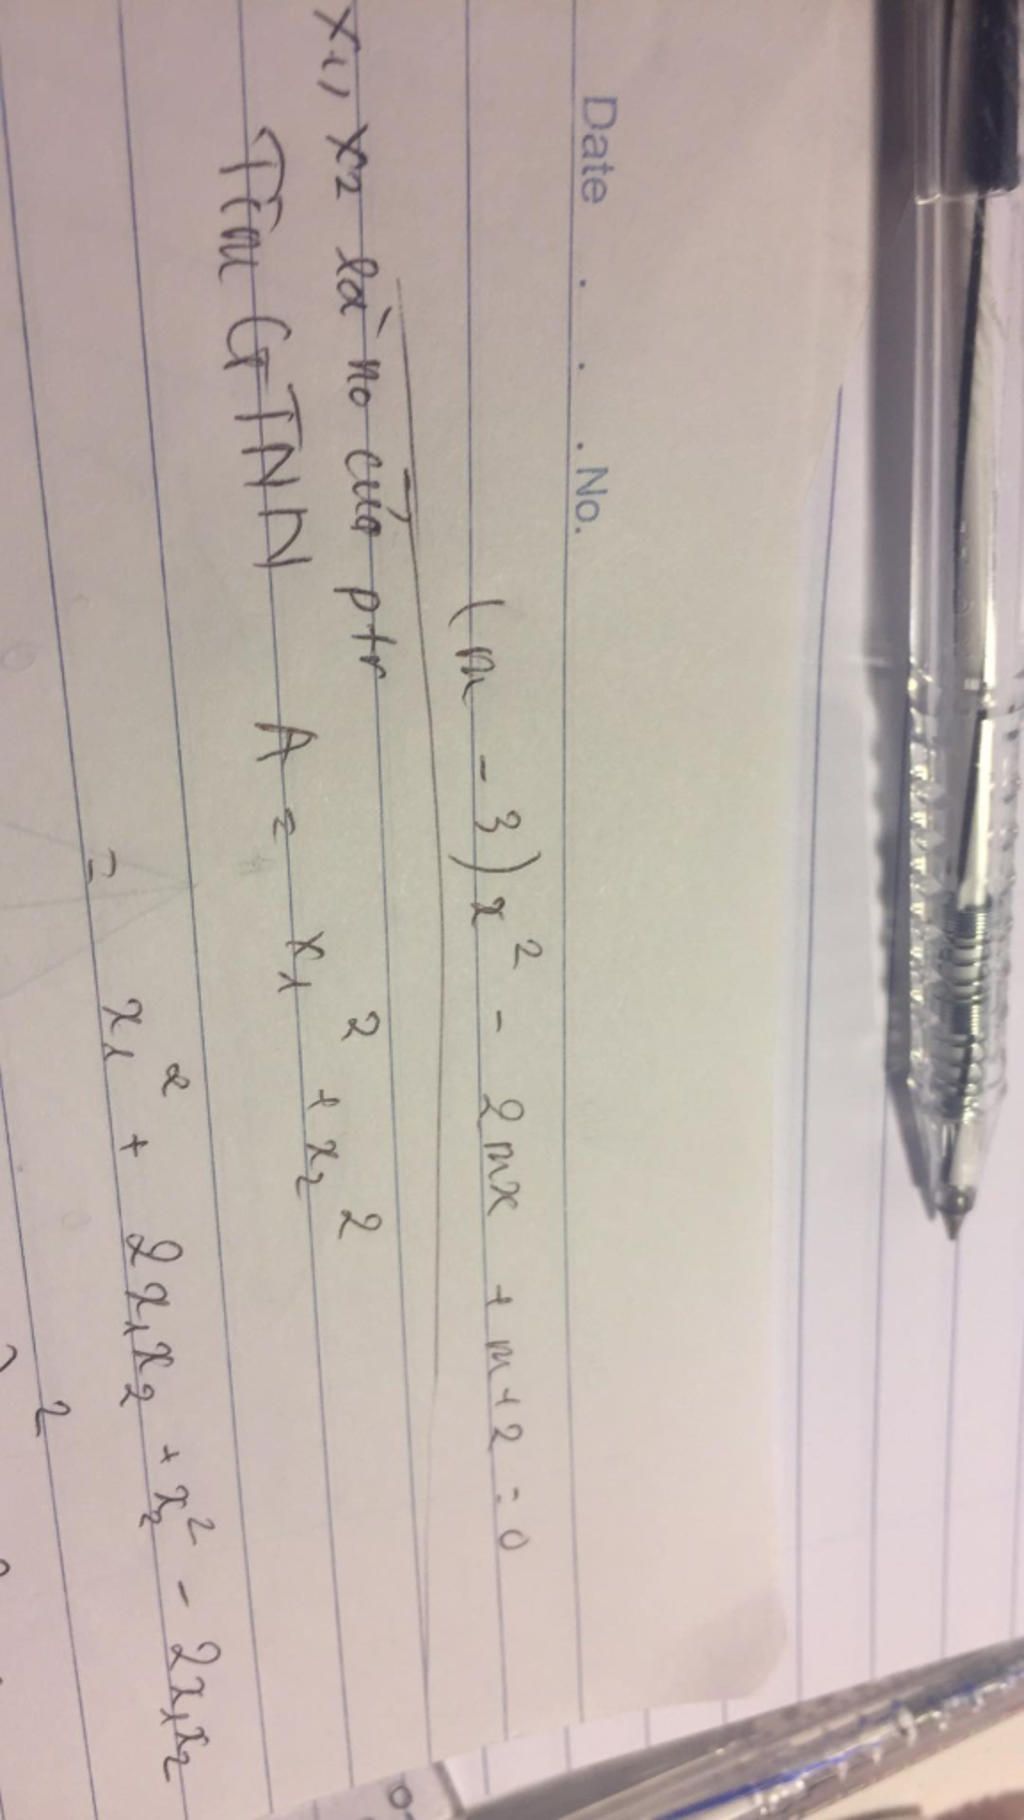 Date . . . No.
(m - 3)x² - 2mx + m+2 = 0
x₁, x₂ là no của ptr
Tìm GTNN A = x₁² + x₂²
= x₁² + 2x₁x₂ + x₂² - 2x₁x₂
2